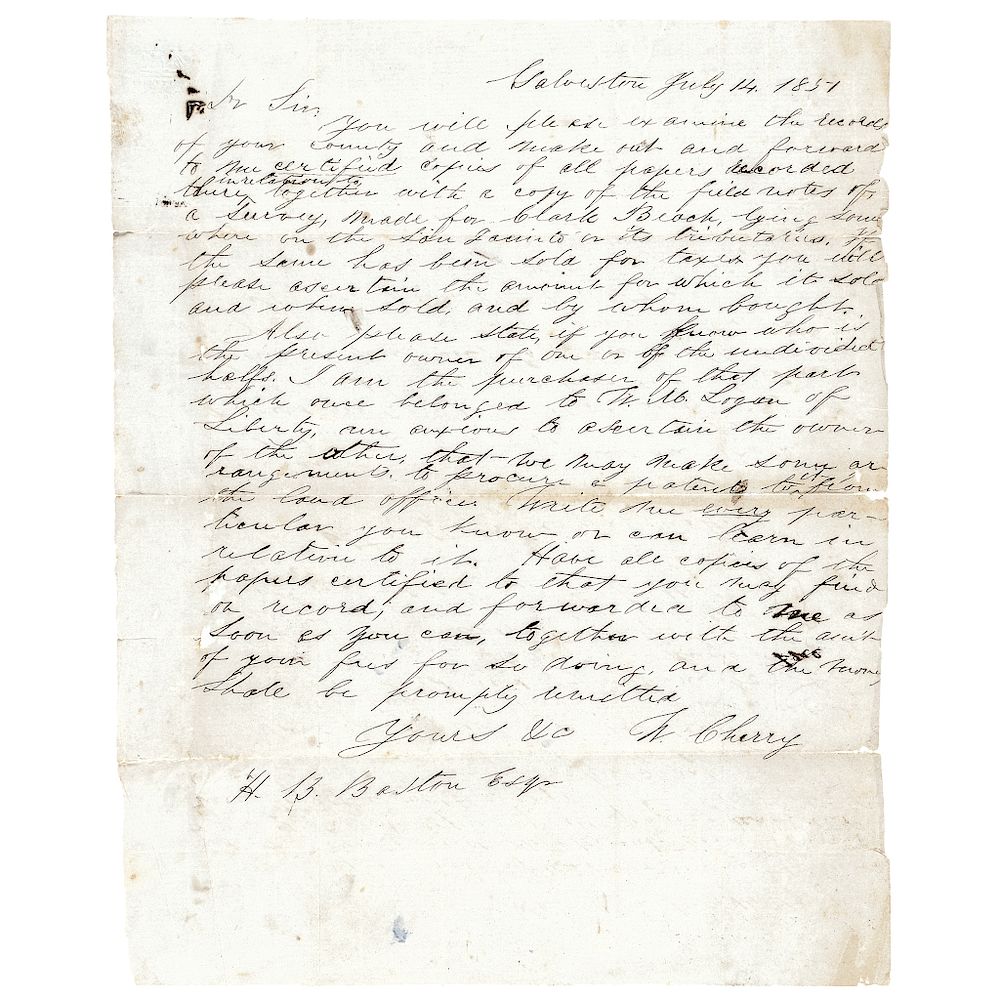 Galveston July 14. 1851
Dr Sir;
You will please examine the records
of your county and make out and forward
to me certified copies of all papers recorded
in relation to
there, together with a copy of the field notes of,
a survey, made for Clark Beach, lying some
where on the San Jacinto or its tributaries. If
the same has been sold for taxes you will
please ascertain the amount for which it sold
and when sold, and by whom bought.
Also please state, if you know who is
the present owner of one or of the undivided
halfs. I am the purchaser of that part
which once belonged to W. M. Logan of
Liberty, am anxious to ascertain the owner
of the other, that we may make some ar-
rangements to procure a patent to it, from
the land office. Write me every par-
ticular you know or can learn in
relation to it. Have all copies of the
papers certified to that you may find
on record, and forwarded to me as
soon as you can, together with the am't
of your fees for so doing, and the money
shall be promptly remitted
Yours &c W. Cherry
H. B. Baston Esqr